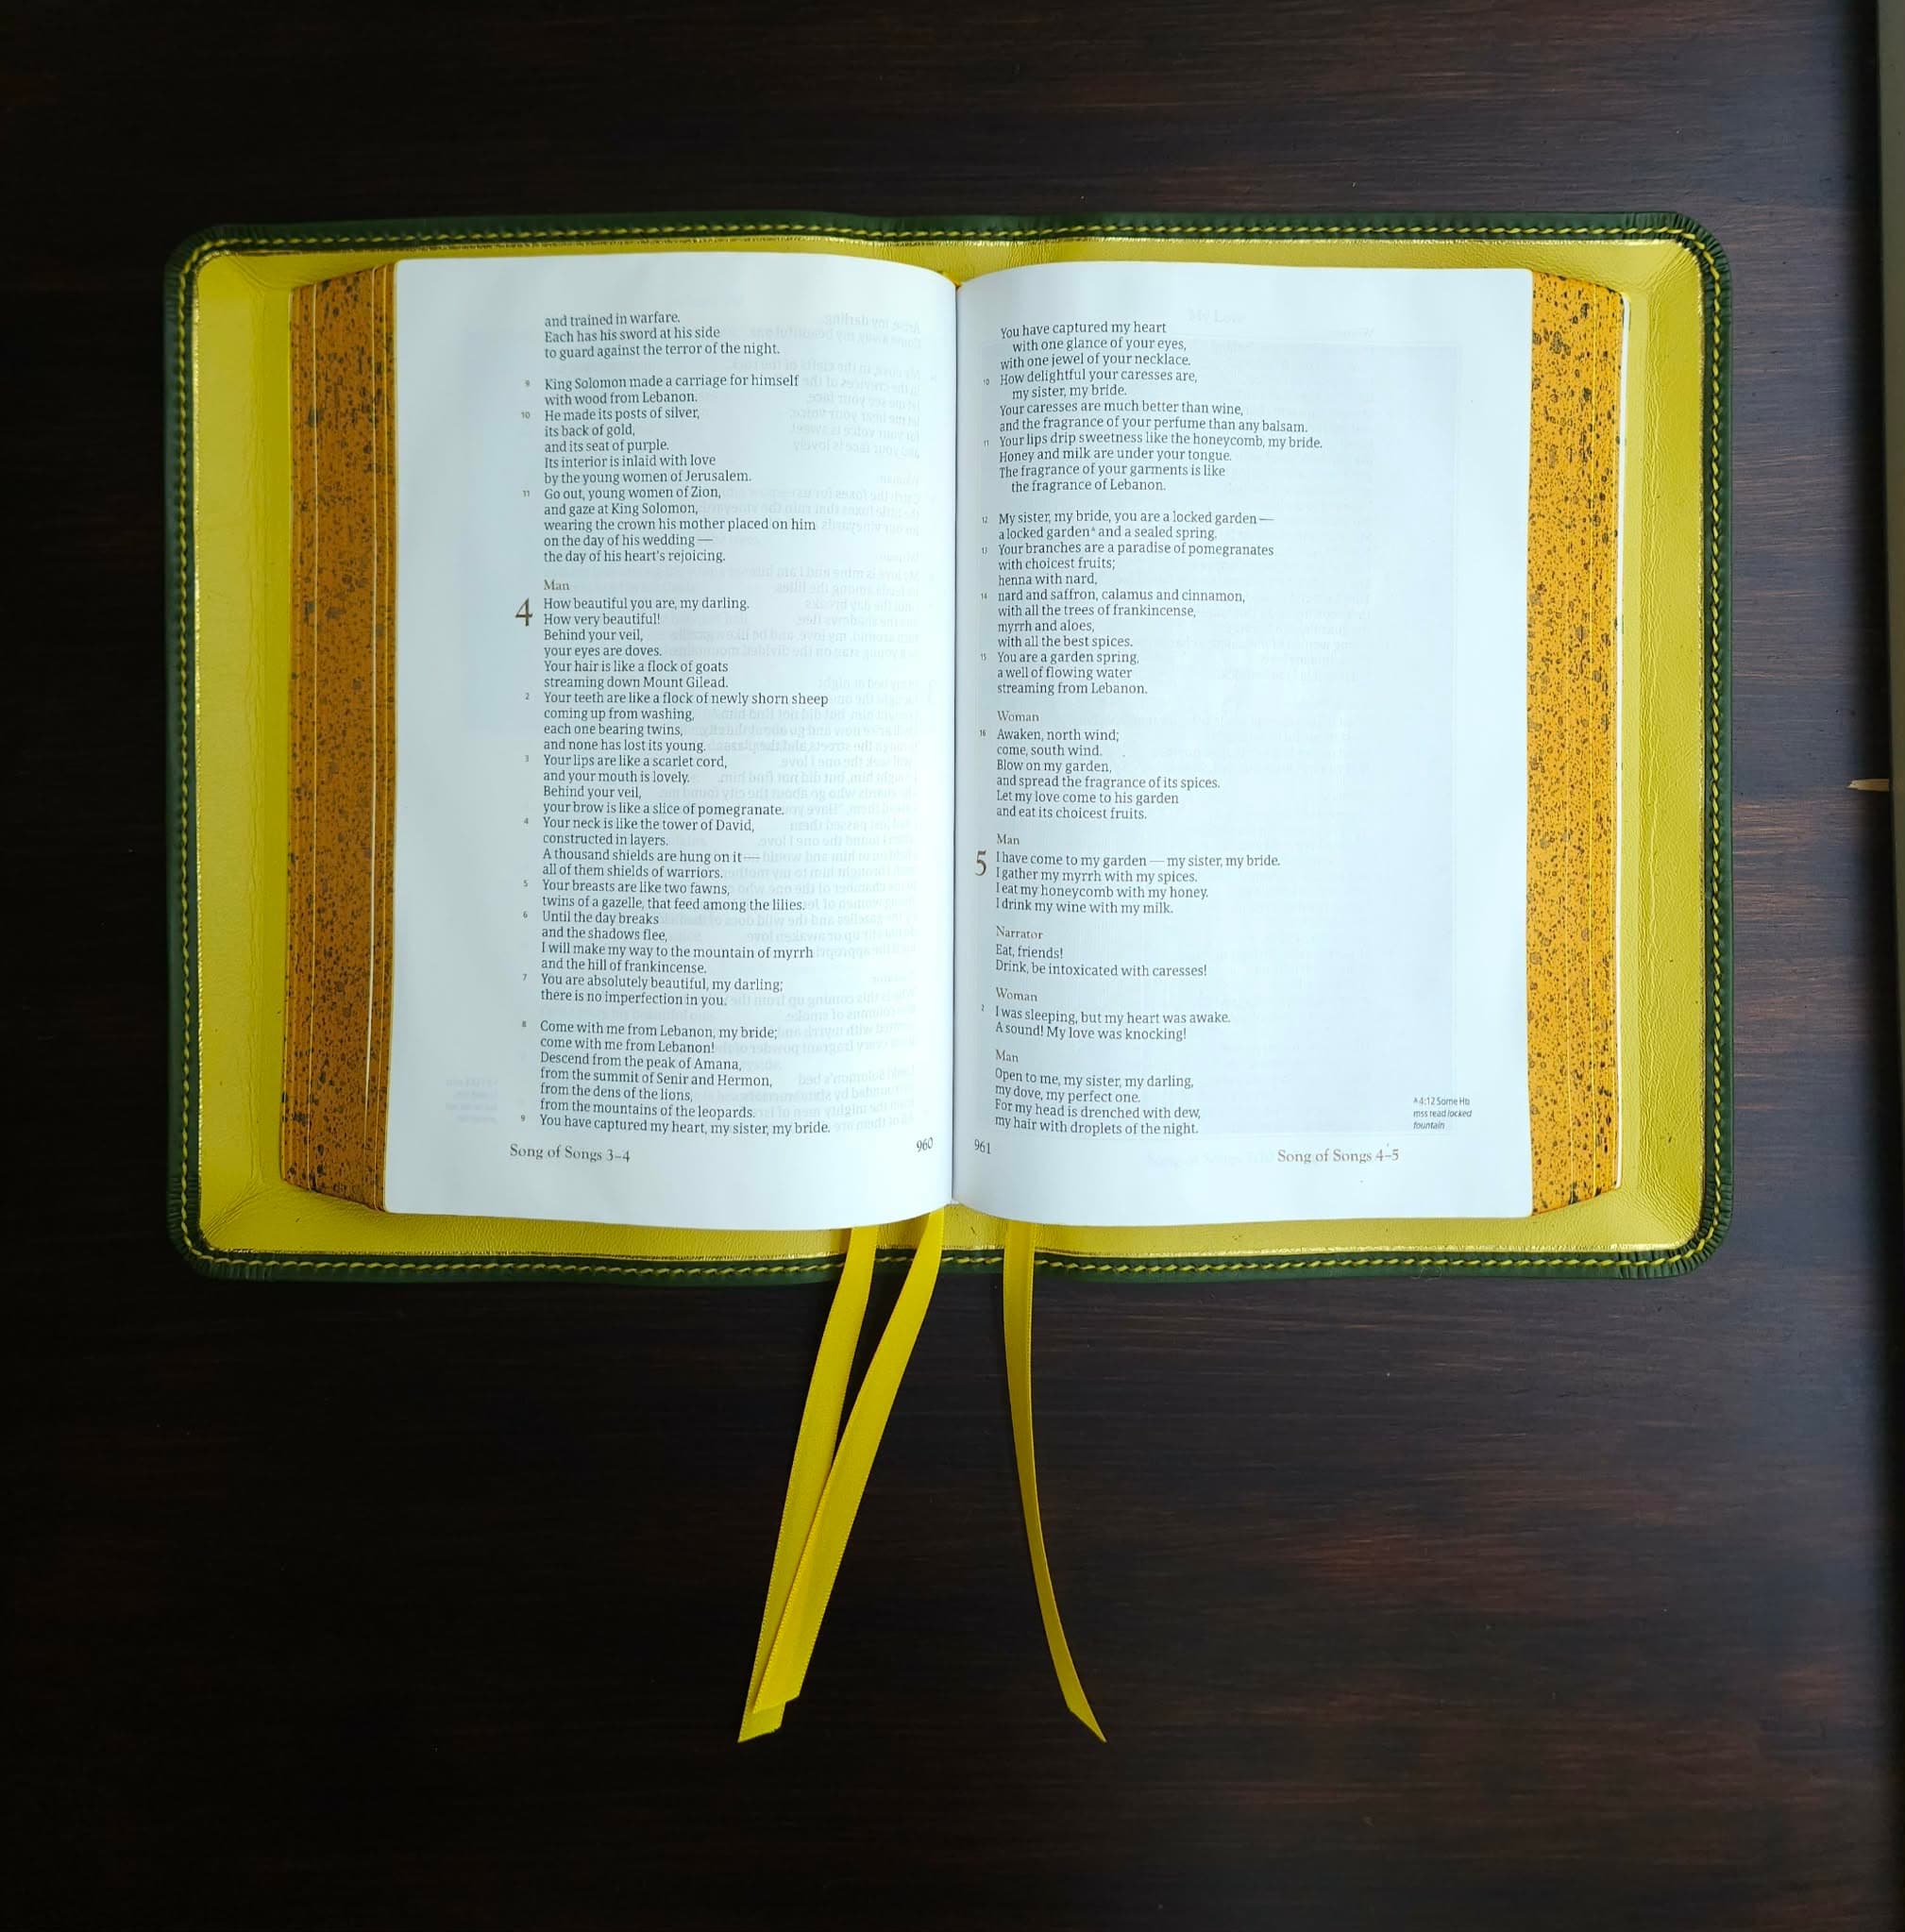 and trained in warfare.
Each has his sword at his side
to guard against the terror of the night.
9 King Solomon made a carriage for himself
with wood from Lebanon.
10 He made its posts of silver,
its back of gold,
and its seat of purple.
Its interior is inlaid with love
by the young women of Jerusalem.
11 Go out, young women of Zion,
and gaze at King Solomon,
wearing the crown his mother placed on him
on the day of his wedding —
the day of his heart's rejoicing.
Man
4 How beautiful you are, my darling.
How very beautiful!
Behind your veil,
your eyes are doves.
Your hair is like a flock of goats
streaming down Mount Gilead.
2 Your teeth are like a flock of newly shorn sheep
coming up from washing,
each one bearing twins,
and none has lost its young.
3 Your lips are like a scarlet cord,
and your mouth is lovely.
Behind your veil,
your brow is like a slice of pomegranate.
4 Your neck is like the tower of David,
constructed in layers.
A thousand shields are hung on it —
all of them shields of warriors.
5 Your breasts are like two fawns,
twins of a gazelle, that feed among the lilies.
6 Until the day breaks
and the shadows flee,
I will make my way to the mountain of myrrh
and the hill of frankincense.
7 You are absolutely beautiful, my darling;
there is no imperfection in you.
8 Come with me from Lebanon, my bride;
come with me from Lebanon!
Descend from the peak of Amana,
from the summit of Senir and Hermon,
from the dens of the lions,
from the mountains of the leopards.
9 You have captured my heart, my sister, my bride.
Song of Songs 3–4
960
You have captured my heart
with one glance of your eyes,
with one jewel of your necklace.
10 How delightful your caresses are,
my sister, my bride.
Your caresses are much better than wine,
and the fragrance of your perfume than any balsam.
11 Your lips drip sweetness like the honeycomb, my bride.
Honey and milk are under your tongue.
The fragrance of your garments is like
the fragrance of Lebanon.
12 My sister, my bride, you are a locked garden —
a locked garden^A and a sealed spring.
13 Your branches are a paradise of pomegranates
with choicest fruits;
henna with nard,
14 nard and saffron, calamus and cinnamon,
with all the trees of frankincense,
myrrh and aloes,
with all the best spices.
15 You are a garden spring,
a well of flowing water
streaming from Lebanon.
Woman
16 Awaken, north wind;
come, south wind.
Blow on my garden,
and spread the fragrance of its spices.
Let my love come to his garden
and eat its choicest fruits.
Man
5 I have come to my garden — my sister, my bride.
I gather my myrrh with my spices.
I eat my honeycomb with my honey.
I drink my wine with my milk.
Narrator
Eat, friends!
Drink, be intoxicated with caresses!
Woman
2 I was sleeping, but my heart was awake.
A sound! My love was knocking!
Man
Open to me, my sister, my darling,
my dove, my perfect one.
For my head is drenched with dew,
my hair with droplets of the night.
A 4:12 Some Hb
mss read locked
fountain
961
Song of Songs 4–5